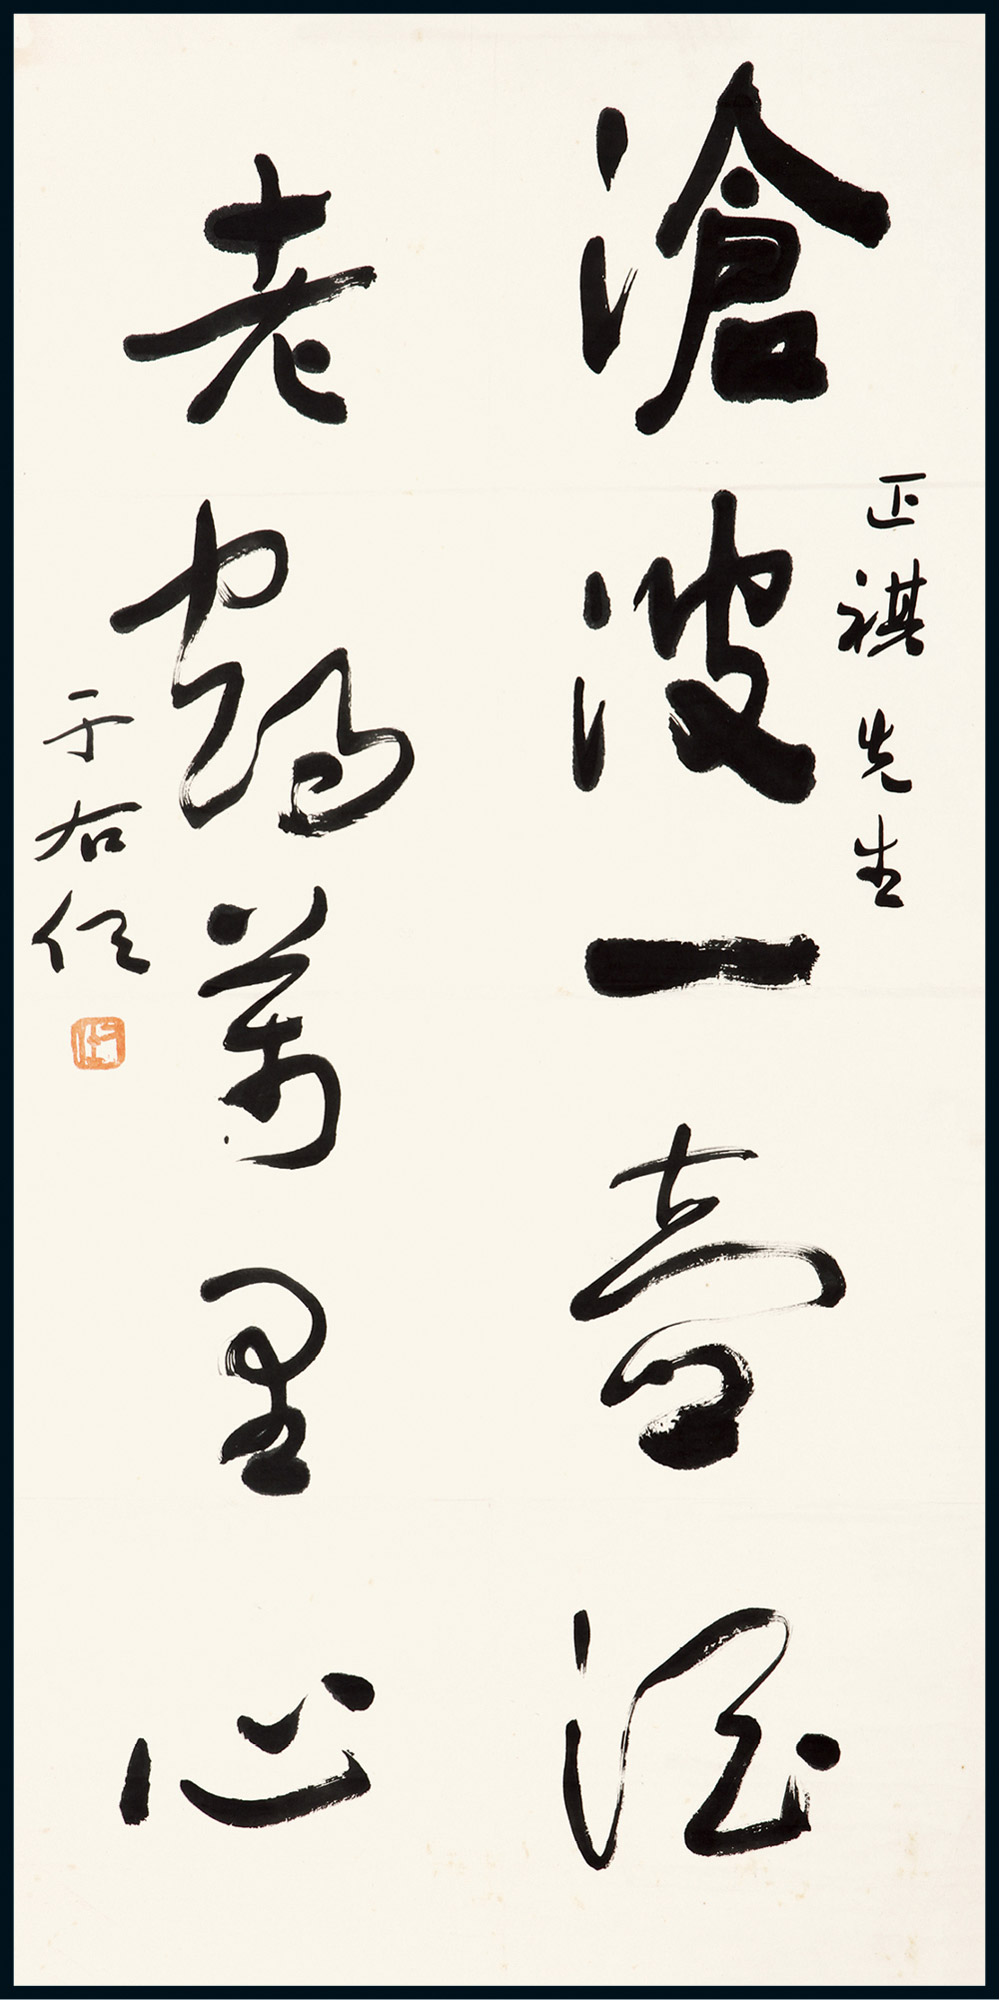 正祺先生
滄波一壺酒
老鶴萬里心
于右任